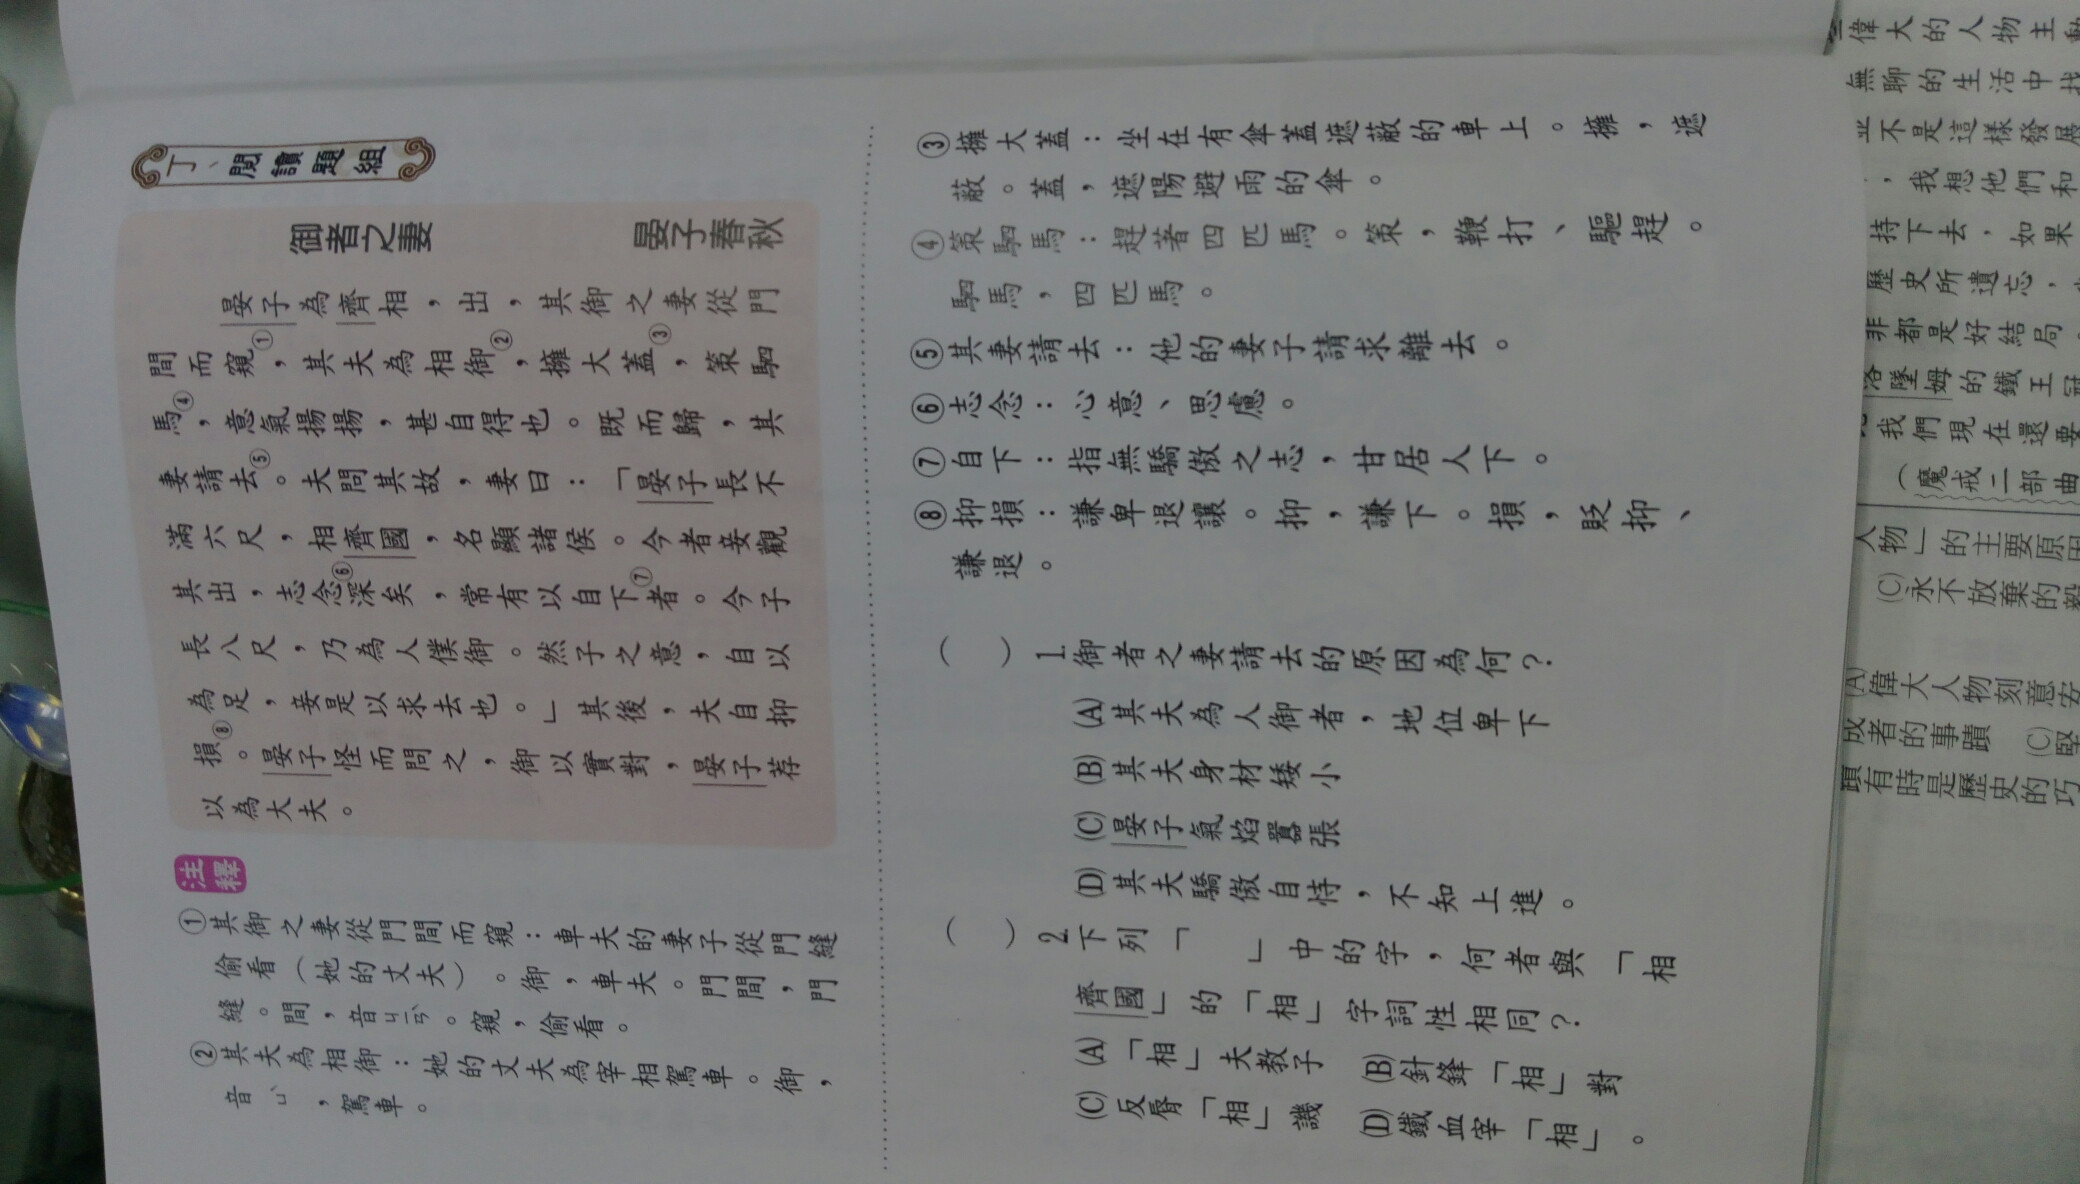 丁、閱讀題組
御者之妻
晏子春秋
晏子為齊相，出，其御之妻從門
間而窺①，其夫為相御②，擁大蓋③，策駟
馬④，意氣揚揚，甚自得也。既而歸，其
妻請去⑤。夫問其故，妻曰：「晏子長不
滿六尺，相齊國，名顯諸侯。今者妾觀
其出，志念深矣⑥，常有以自下者⑦。今子
長八尺，乃為人僕御。然子之意，自以
為足，妾是以求去也。」其後，夫自抑
損⑧。晏子怪而問之，御以實對，晏子荐
以為大夫。
注釋
①其御之妻從門間而窺：車夫的妻子從門縫
偷看（她的丈夫）。御，車夫。門間，門
縫。間，音ㄐㄧㄢ。窺，偷看。
②其夫為相御：她的丈夫為宰相駕車。御，
音ㄩˋ，駕車。
③擁大蓋：坐在有傘蓋遮蔽的車上。擁，遮
蔽。蓋，遮陽避雨的傘。
④策駟馬：趕著四匹馬。策，鞭打、驅趕。
駟馬，四匹馬。
⑤其妻請去：他的妻子請求離去。
⑥志念：心意、思慮。
⑦自下：指無驕傲之志，甘居人下。
⑧抑損：謙卑退讓。抑，謙下。損，貶抑、
謙退。
（　）1.御者之妻請去的原因為何？
(A)其夫為人御者，地位卑下
(B)其夫身材矮小
(C)晏子氣焰囂張
(D)其夫驕傲自恃，不知上進。
（　）2.下列「　」中的字，何者與「相
齊國」的「相」字詞性相同？
(A)「相」夫教子　(B)針鋒「相」對
(C)反脣「相」譏　(D)鐵血宰「相」。
偉大的人物主動
無聊的生活中找
不是這樣發展
，我想他們和
持下去，如果
歷史所遺忘，
非都是好結局。
洛墜姆的鐵王冠
我們現在還要
（魔戒二部曲
人物」的主要原因
(C)永不放棄的毅
(A)偉大人物刻意安
成者的事蹟　(C)堅
蹟有時是歷史的巧